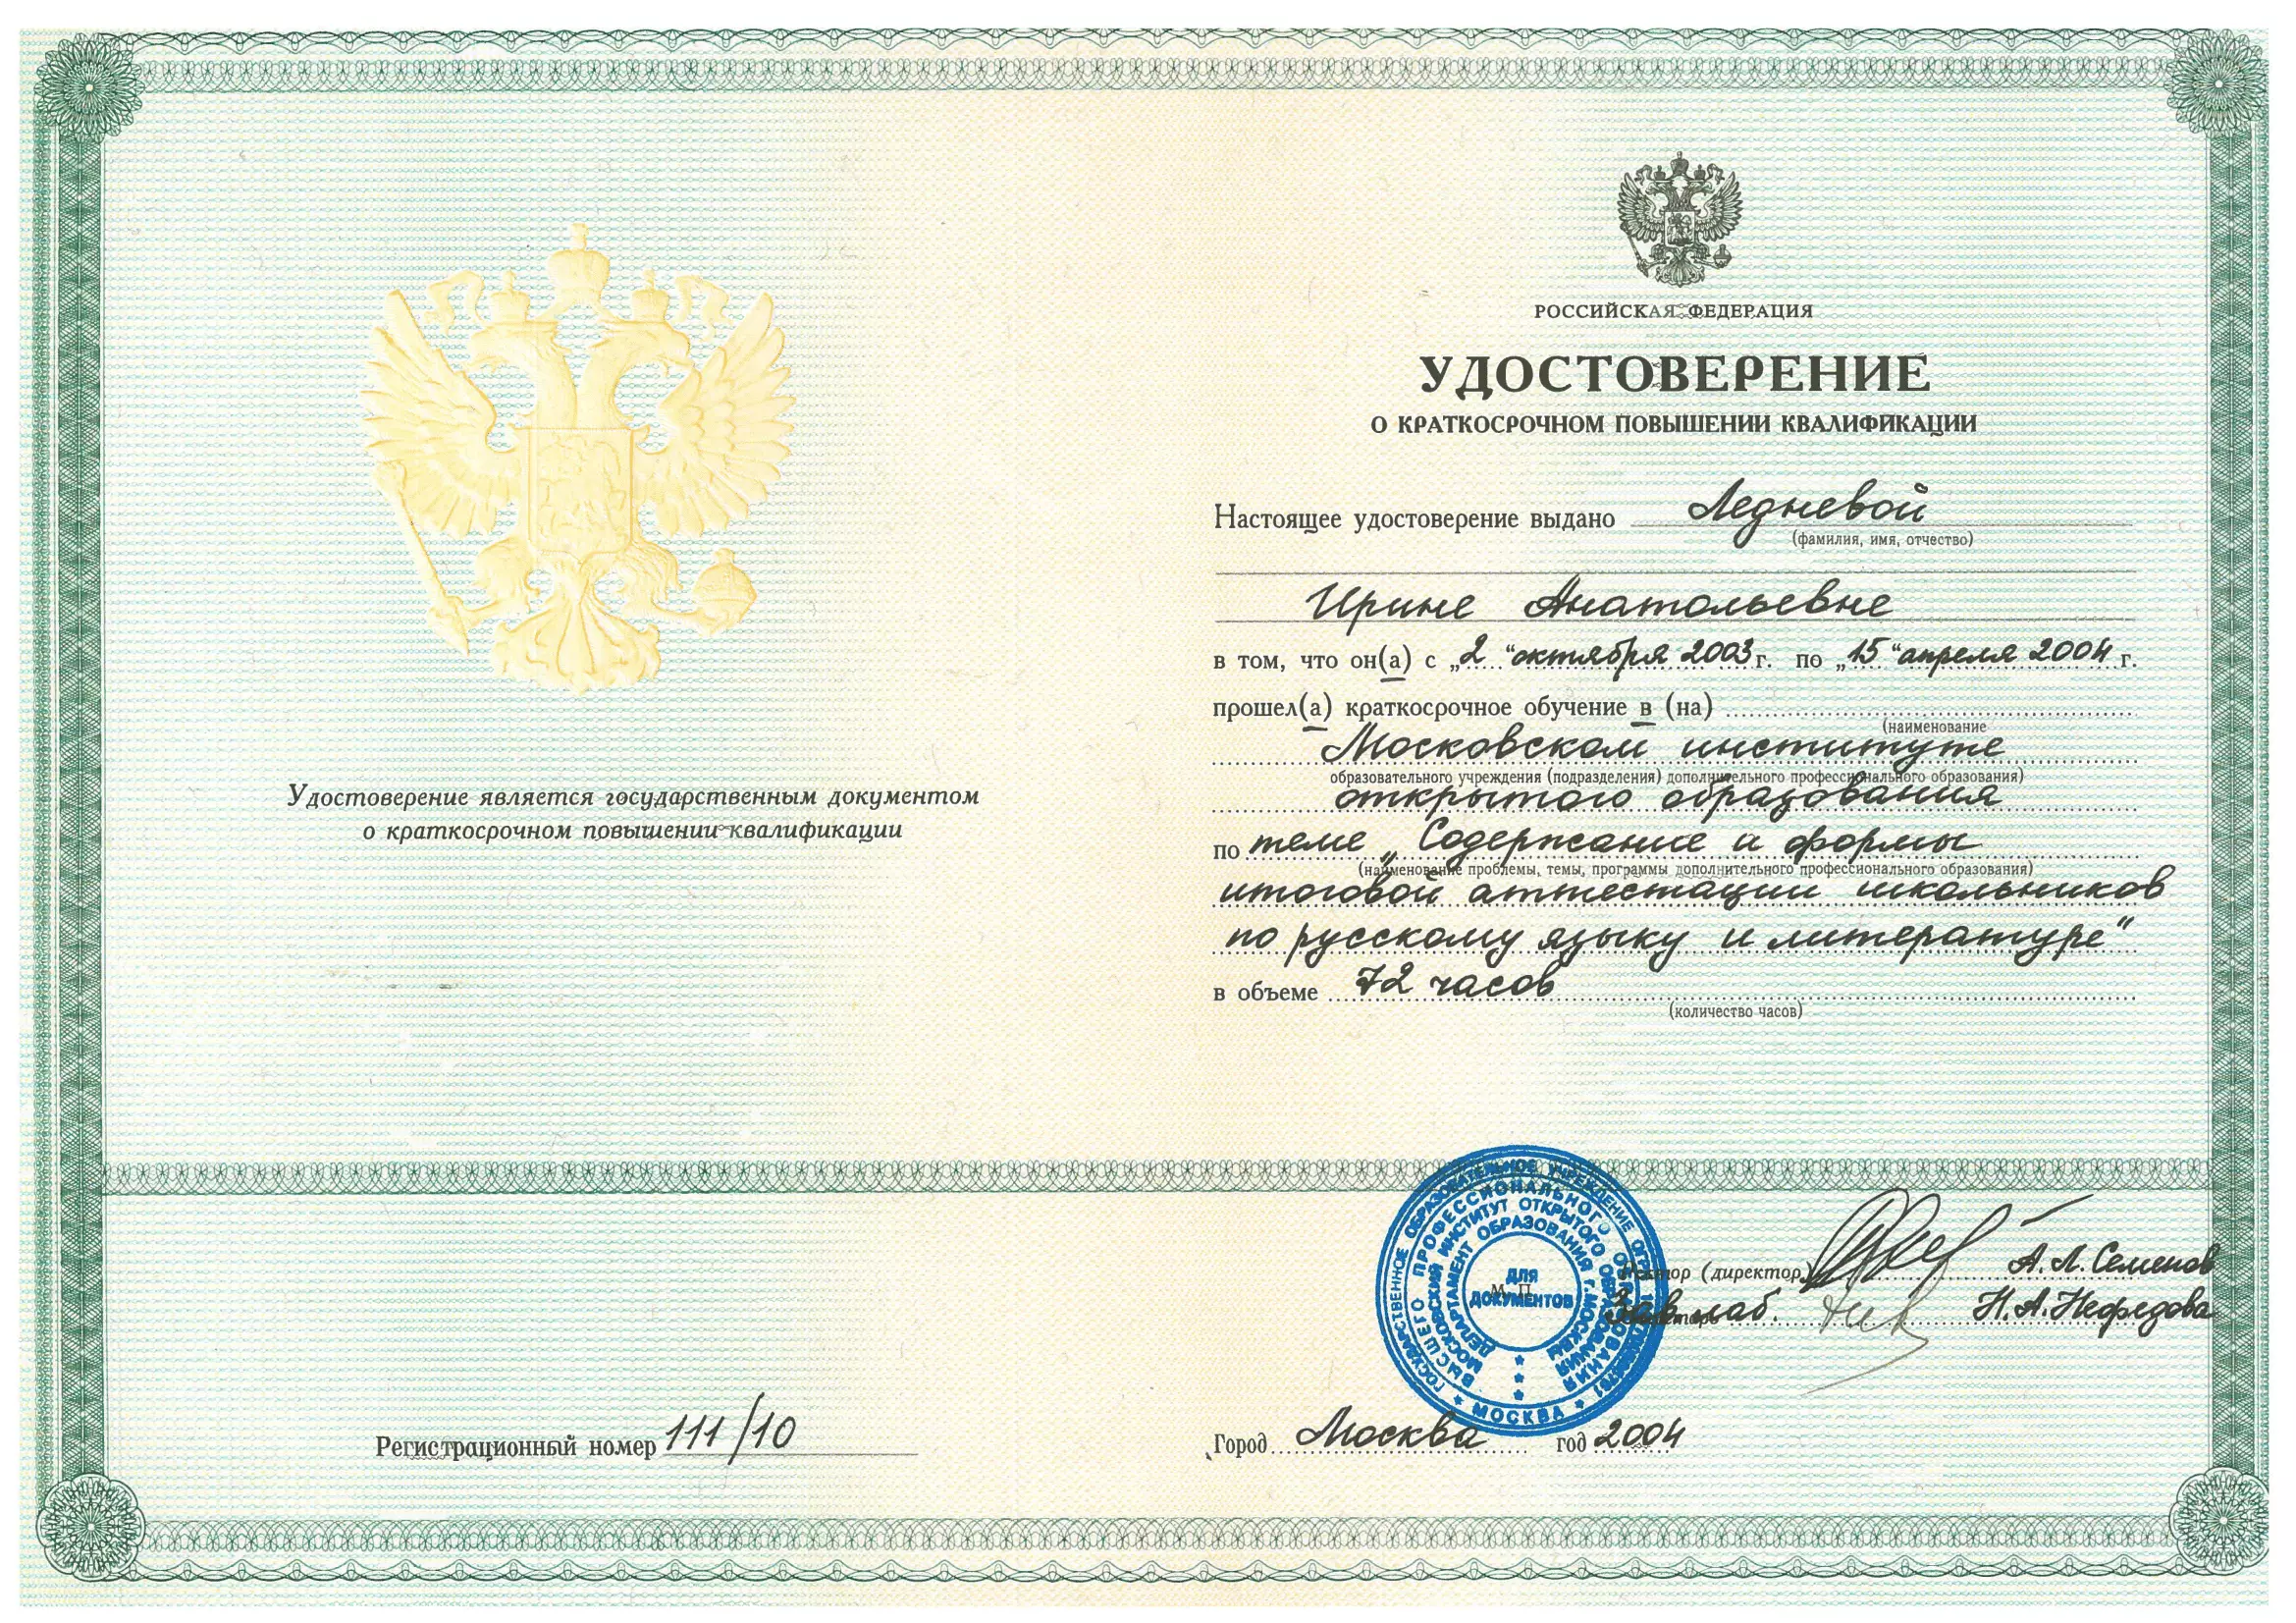 Удостоверение является государственным документом
о краткосрочном повышении квалификации
Регистрационный номер 111/10
РОССИЙСКАЯ ФЕДЕРАЦИЯ
УДОСТОВЕРЕНИЕ
О КРАТКОСРОЧНОМ ПОВЫШЕНИИ КВАЛИФИКАЦИИ
Настоящее удостоверение выдано Ледневой
(фамилия, имя, отчество)
Ирине Анатольевне
в том, что он(а) с „2“ октября 2003 г. по „15“ апреля 2004 г.
прошел(а) краткосрочное обучение в (на)
(наименование
Московском институте
образовательного учреждения (подразделения) дополнительного профессионального образования)
открытого образования
по теме „Содержание и формы
(наименование проблемы, темы, программы дополнительного профессионального образования)
итоговой аттестации школьников
по русскому языку и литературе“
в объеме 72 часов
(количество часов)
ГОСУДАРСТВЕННОЕ ОБРАЗОВАТЕЛЬНОЕ УЧРЕЖДЕНИЕ
ВЫСШЕГО ПРОФЕССИОНАЛЬНОГО ОБРАЗОВАНИЯ
МОСКОВСКИЙ ИНСТИТУТ ОТКРЫТОГО ОБРАЗОВАНИЯ
ДЕПАРТАМЕНТ ОБРАЗОВАНИЯ г.МОСКВЫ
ДЛЯ
ДОКУМЕНТОВ
М. П.
МОСКВА
Ректор (директор) А. Л. Семенов
Зав. лаб. Н. А. Нефедова
Город Москва год 2004